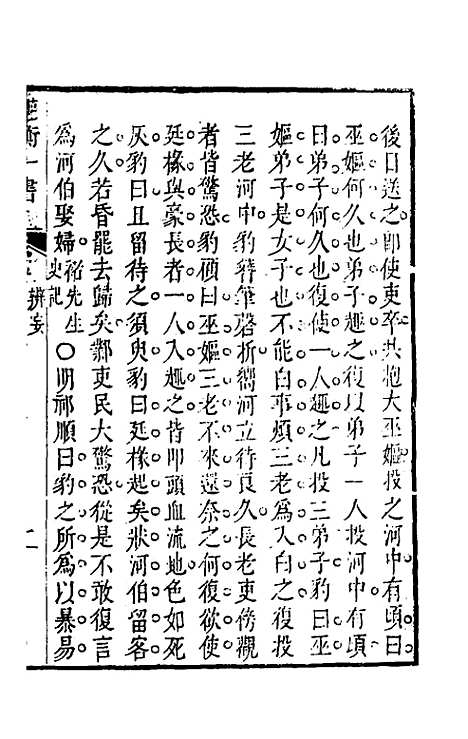 後日送之卽使吏卒共抱大巫嫗投之河中有頃曰
巫嫗何久也弟子趣之復以弟子一人投河中有頃
曰弟子何久也復使一人趣之凡投三弟子豹曰巫
嫗弟子是女子也不能白事煩三老爲入白之復投
三老河中豹簪筆磬折嚮河立待良久長老吏傍觀
者皆驚恐豹顧曰巫嫗三老不來還奈之何復欲使
廷椽與豪長者一人入趣之皆叩頭血流地色如死
灰豹曰且留待之須臾豹曰廷椽起矣狀河伯留客
之久若皆罷去歸矣鄴吏民大驚恐從是不敢復言
爲河伯娶婦
史記褚先生
○明祁順曰豹之所爲以暴易
一書
辨妄
二